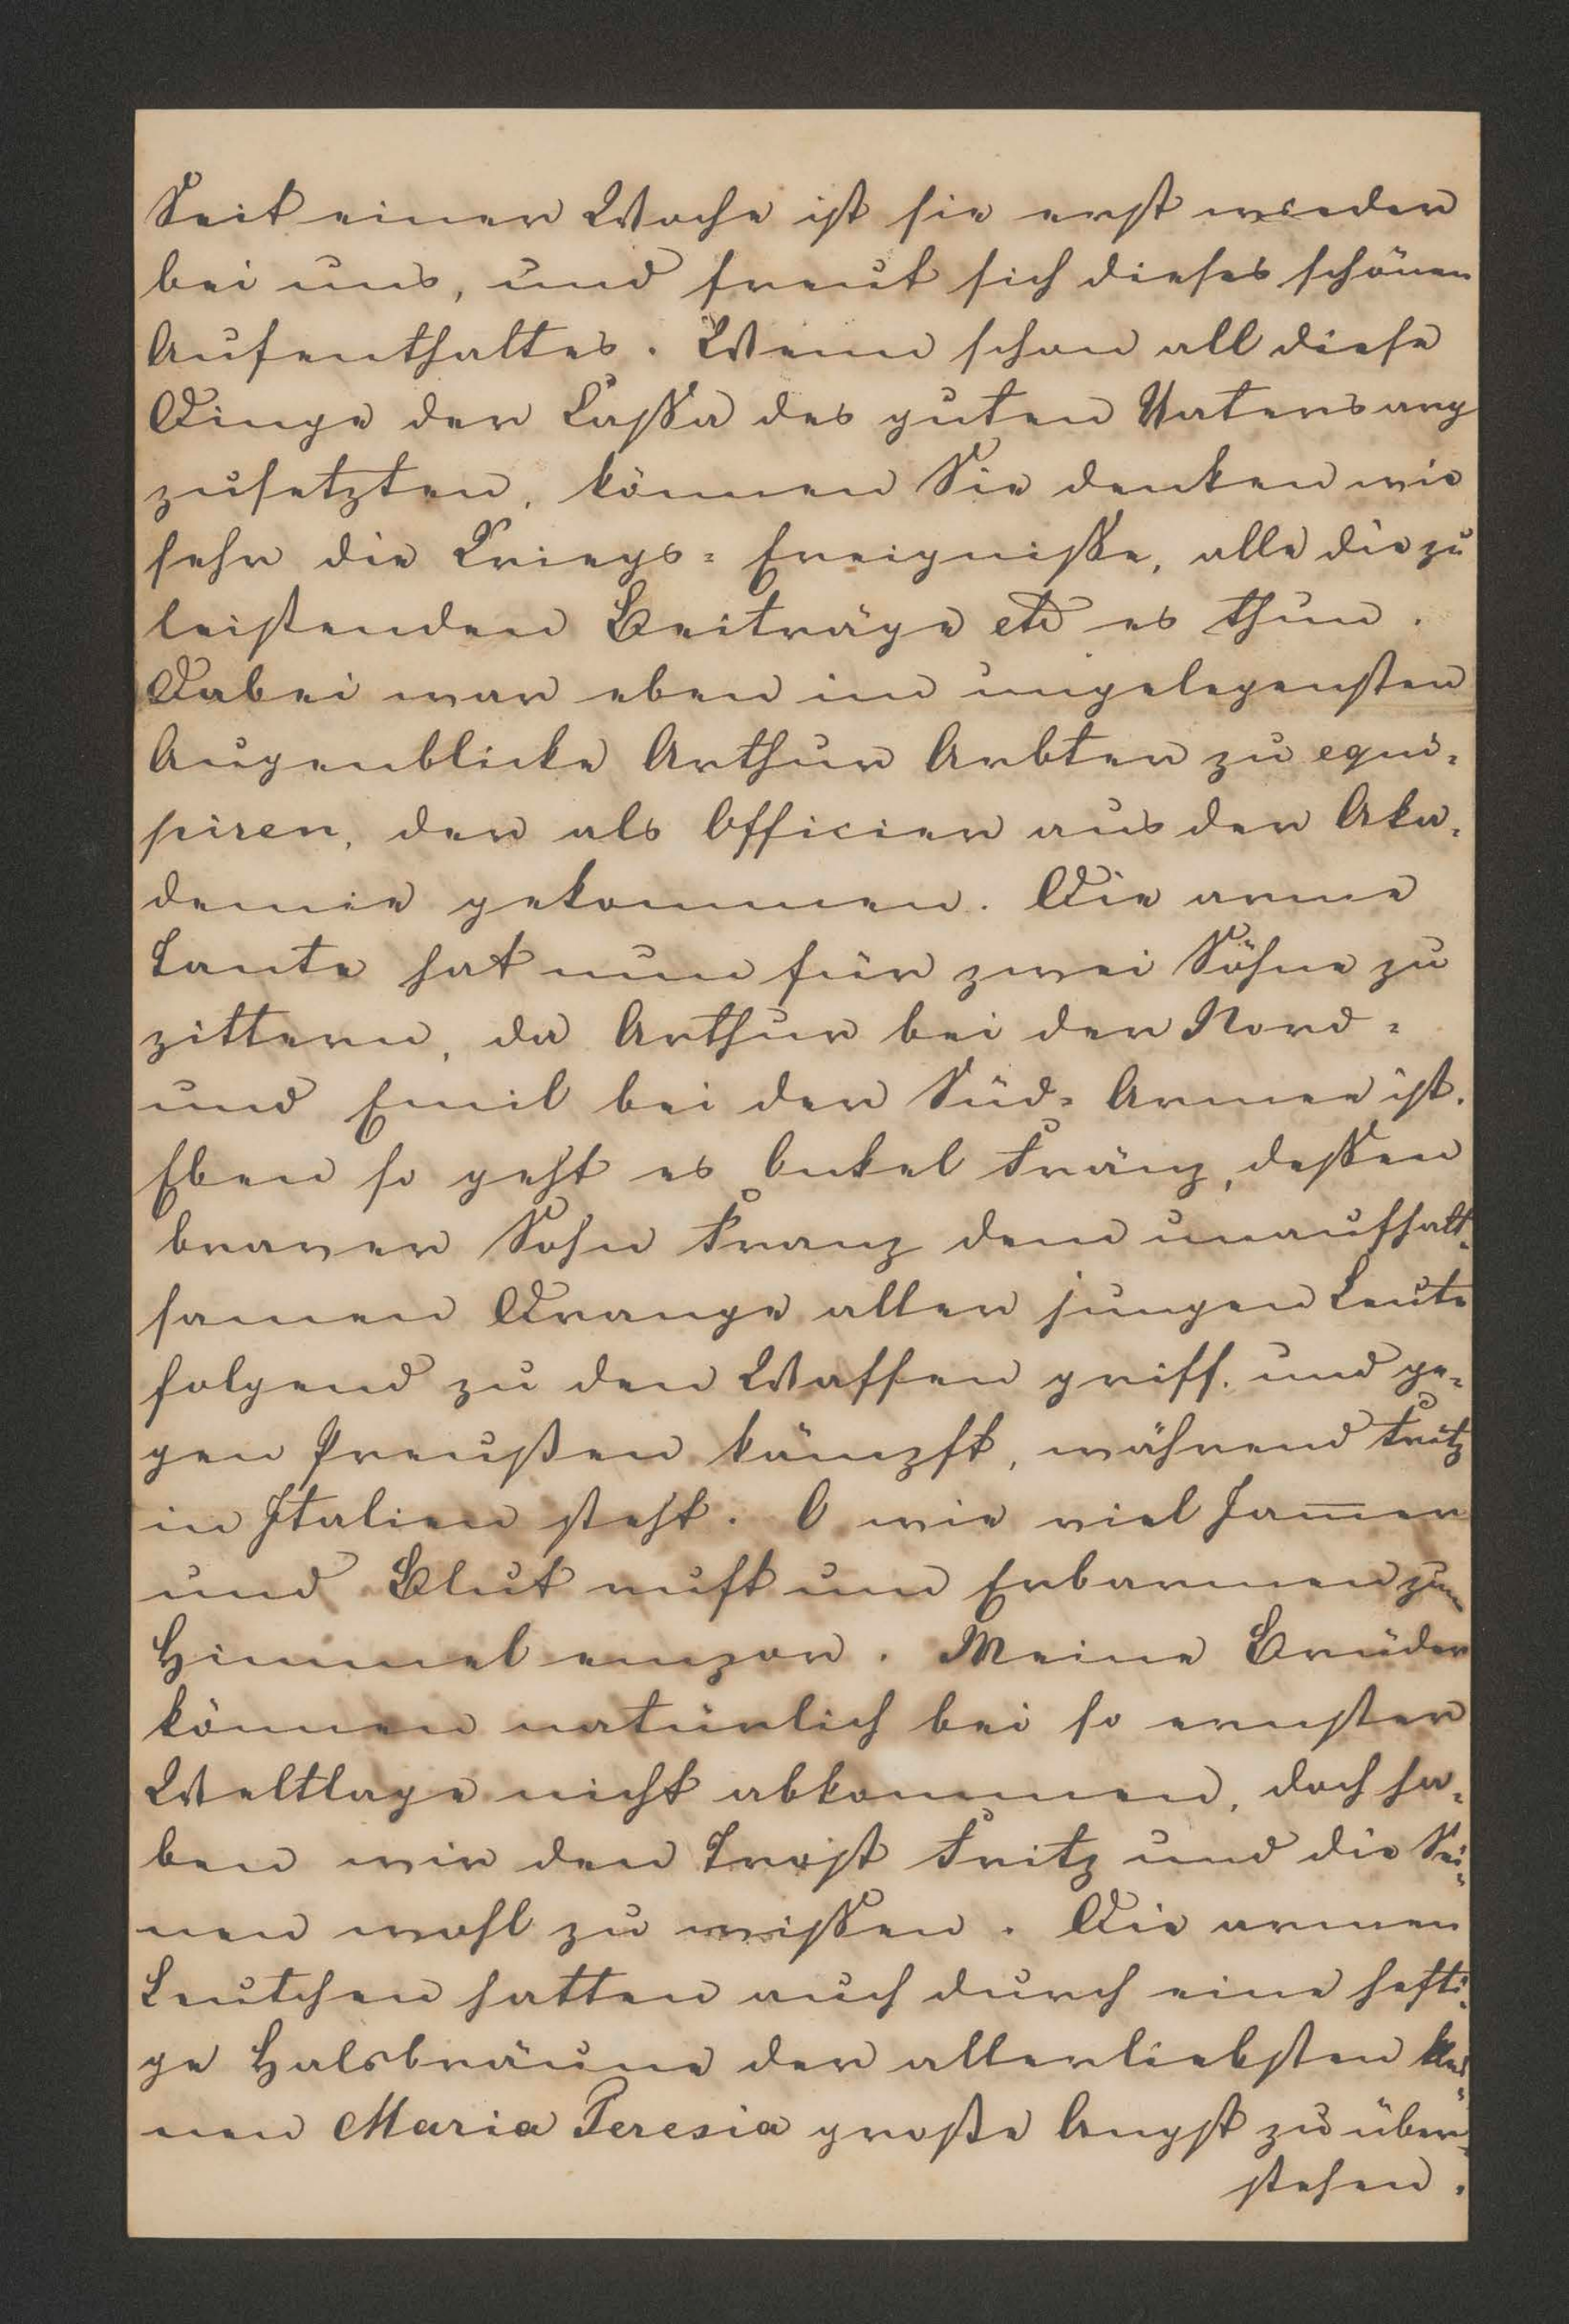 Seit einer Woche ist sie erst wieder
bei uns, und freut sich dieses schönen
Aufenthaltes. Wenn schon all diese
Dinge der Cassa des guten Vaters arg
zusetzten, können Sie denken wie
sehr die Kriegs= Ereignisse, alle die zu
leistenden Beiträge etc es thun.
Dabei war eben im ungelegensten
Augenblicke Arthur Arbter zu equi=
piren, der als Officier aus der Aka=
demie gekommen. Die arme
Tante hat nun für zwei Söhne zu
zittern, da Arthur bei der Nord=
und Emil bei der Süd= Armee ist.
Eben so geht es Onkel Fränz, dessen
braver Sohn Franz dem unaufhalt=
samen Drange aller jungen Leute
folgend zu den Waffen griff. und ge=
gen Preußen kämpft, während Fritz
in Italien steht. O wie viel Jam̅er
und Blut ruft um Erbarmen zum
Himmel empor. Meine Brüder
können natürlich bei so ernster
Weltlage nicht abkommen, doch ha=
ben wir den Trost Fritz und die Sei=
nen wohl zu wissen. Die armen
Leutchen hatten auch durch eine hefti=
ge Halsbräune der allerliebsten klei=
nen Maria Teresia große Angst zu über=
stehen.